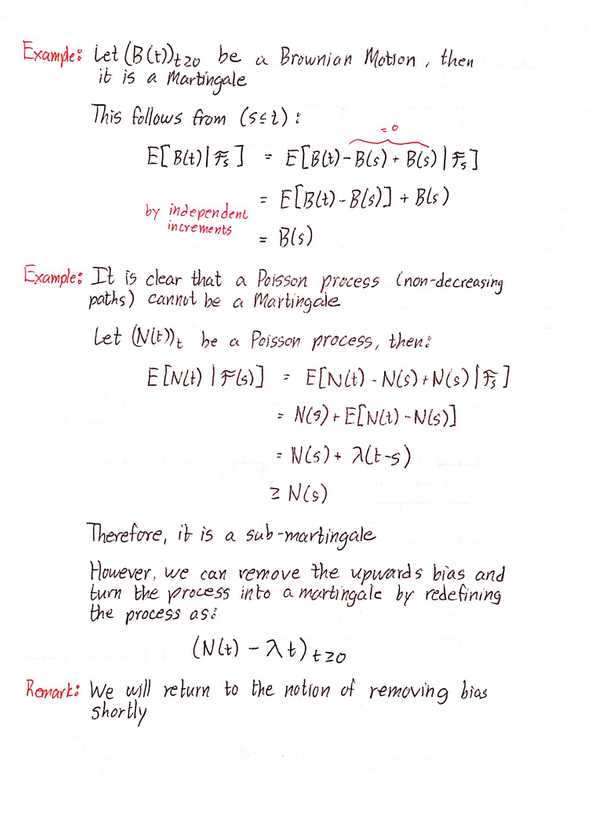 Example: Let (B(t))t≥0 be a Brownian Motion, then
it is a Martingale
This follows from (s≤t):
= 0
E[B(t)|Fs] = E[B(t)-B(s)+B(s)|Fs]
= E[B(t)-B(s)] + B(s)
by independent
increments
= B(s)
Example: It is clear that a Poisson process (non-decreasing
paths) cannot be a Martingale
Let (N(t))t be a Poisson process, then:
E[N(t) | F(s)] = E[N(t) - N(s) + N(s) | Fs]
= N(s) + E[N(t) - N(s)]
= N(s) + λ(t-s)
≥ N(s)
Therefore, it is a sub-martingale
However, we can remove the upwards bias and
turn the process into a martingale by redefining
the process as:
(N(t) - λt)t≥0
Remark: We will return to the notion of removing bias
shortly